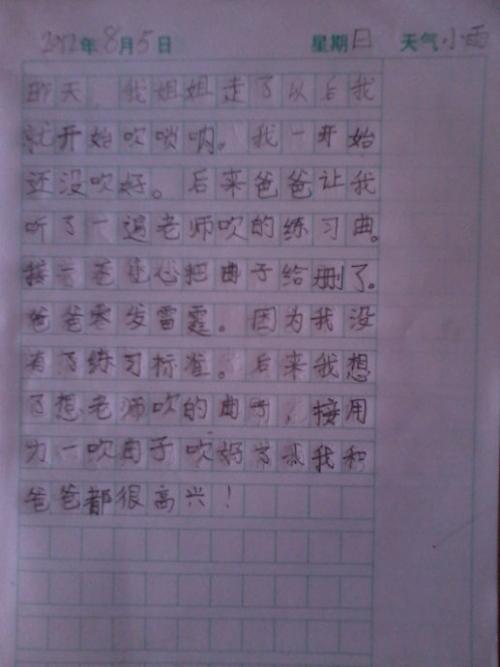 2012年8月5日 星期日 天气小雨
那天，我姐姐走了以后我
就开始吹唢呐。我一开始
还没吹好。后来爸爸让我
听了一遍老师吹的练习曲。
接 爸 心把曲子给删了。
爸爸 发雷霆。因为我没
有了练习标准。后来我想
了想老师吹的曲子，接用
力一吹曲子吹好 我和
爸爸都很高兴！